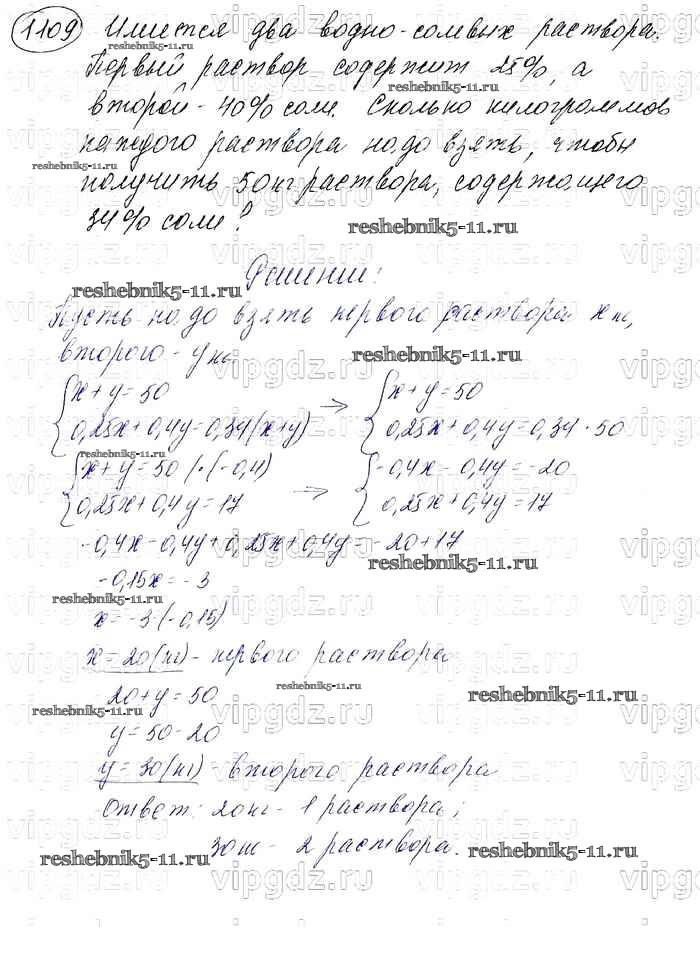 1109 Имеется два водно-солевых раствора.
Первый раствор содержит 25%, а
второй - 40% соли. Сколько килограммов
каждого раствора надо взять, чтобы
reshebnik5-11.ru
получить 50 кг раствора, содержащего
34% соли?
reshebnik5-11.ru
Решение:
reshebnik5-11.ru
Пусть надо взять первого раствора x кг,
второго - y кг.
reshebnik5-11.ru
x + y = 50 → x + y = 50
0,25x + 0,4y = 0,34(x+y) 0,25x + 0,4y = 0,34 · 50
reshebnik5-11.ru
x + y = 50 | · (-0,4) → -0,4x - 0,4y = -20
0,25x + 0,4y = 17 0,25x + 0,4y = 17
-0,4x - 0,4y + 0,25x + 0,4y = -20 + 17
reshebnik5-11.ru
-0,15x = -3
reshebnik5-11.ru
x = -3 : (-0,15)
x = 20 (кг) - первого раствора
reshebnik5-11.ru
20 + y = 50
reshebnik5-11.ru
reshebnik5-11.ru
y = 50 - 20
y = 30 (кг) - второго раствора
Ответ: 20 кг - 1 раствора;
30 кг - 2 раствора.
reshebnik5-11.ru
reshebnik5-11.ru
vipgdz.ru